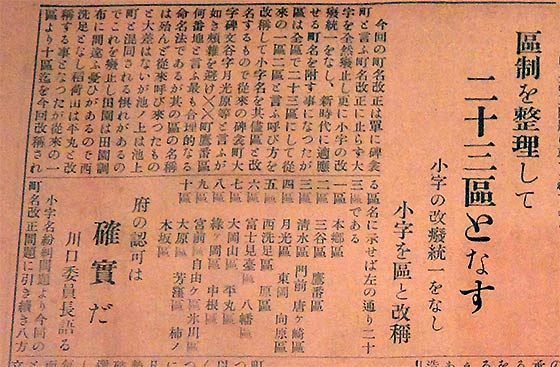 區制を整理して
二十三區となす
小字の改癈統一をなし
小字を區と改稱
今回の町名改正は單に碑衾
町と言ふ町名改正に止らず大
字を全然癈止し更に小字の改
癈統一をなし、新時代に適應
せる町名を附す事になつたが
區は全區で二十三區にして從
來の一區二區と言ふ呼び方を
改稱して小字名を其儘區と改
名するもので從來の碑衾町大
字碑文谷字月光原等と言ふが
如き複雜を避け××町鷹番區
何番地と言ふ最も合理的なる
命名法であるが其の區の名稱
は殆んど從來呼び來つたもの
と大差はないが池ノ上は池上
町と混同される惧れがあるの
でこれを癈止し田園は田園調
布に間違ふ憂ひがあるので西
洗足となし稻荷山は平丸と改
稱する事となつたが從來の一
區より十區迄を今回改稱され
る區名に示せば左の通り二十
三區である
一區 本鄕區
二區 三谷區 鷹番區
三區 清水區 門前 唐ヶ崎區
四區 月光區 東岡 向原區
五區 西洗足區 原區
六區 富士見臺區 八幡區
七區 大岡山區 平丸區
八區 綠ヶ岡區 中根區
九區 宮前區 自由ヶ 氷川區
十區 大原區 芳窪區 柿ノ
木坂區
府の認可は
確實だ
川口委員長語る
小字名紛糾問題より今回の
町名改正問題に引き續き八方